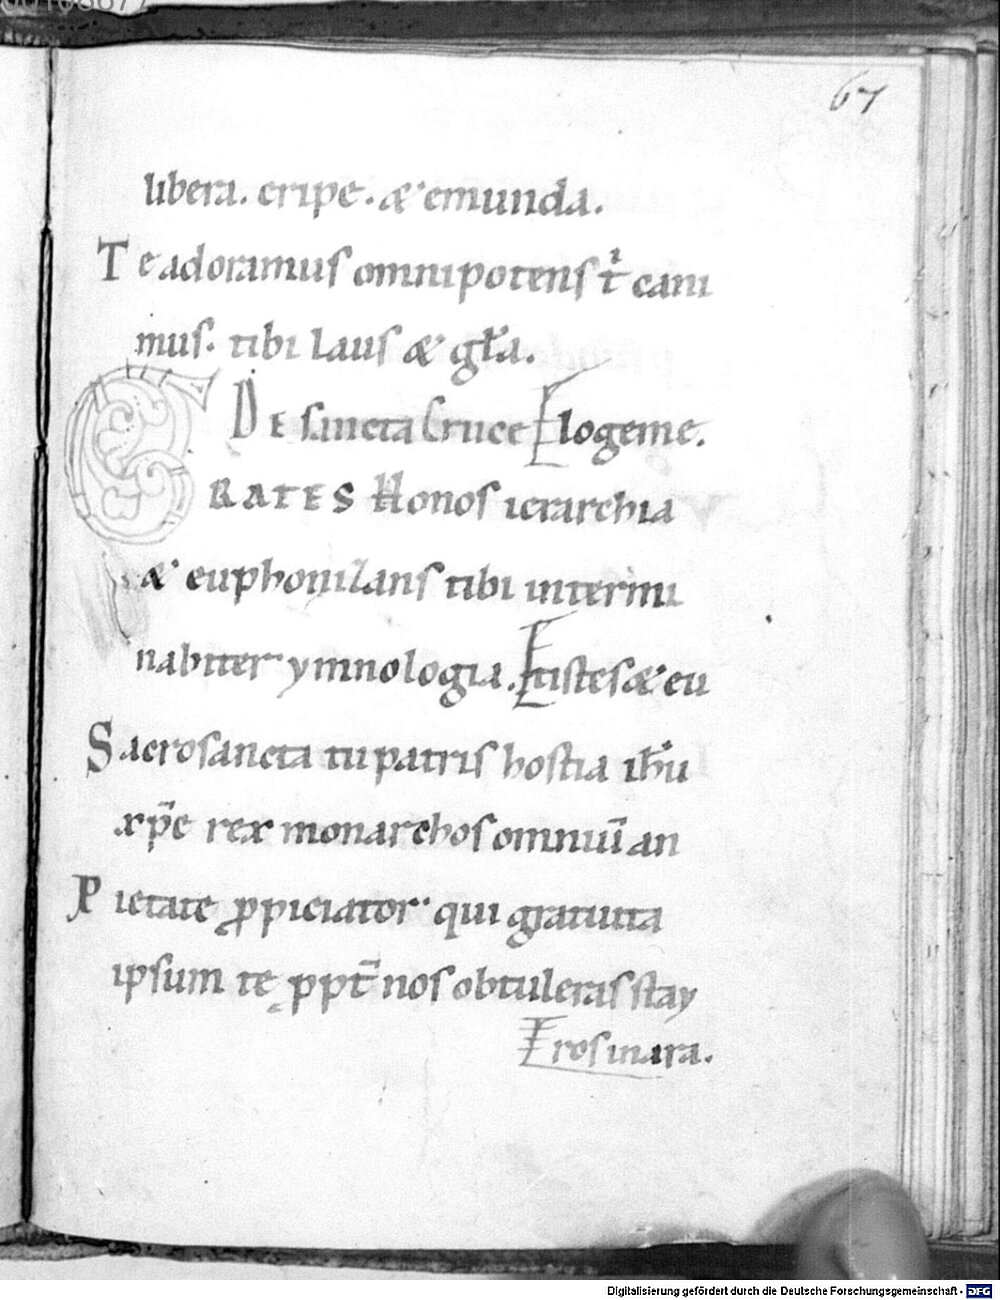 67
libera. eripe. & emunda.
Te adoramus omnipotens t̄ cani
mus. tibi laus & gl̄a.
DE sancta Cruce Elogeme.
GRATES Honos ierarchia
& euphonizans tibi intermi
nabiter ymnologia. Etistes & eu
Sacrosancta tu patris hostia ih̄u
xp̄e rex monarchos omniū an
Pietate ꝓpiciator qui gratuita
ipsum te ꝓpt̄ nos obtuleras stay
rosinara.
Digitalisierung gefördert durch die Deutsche Forschungsgemeinschaft - DFG